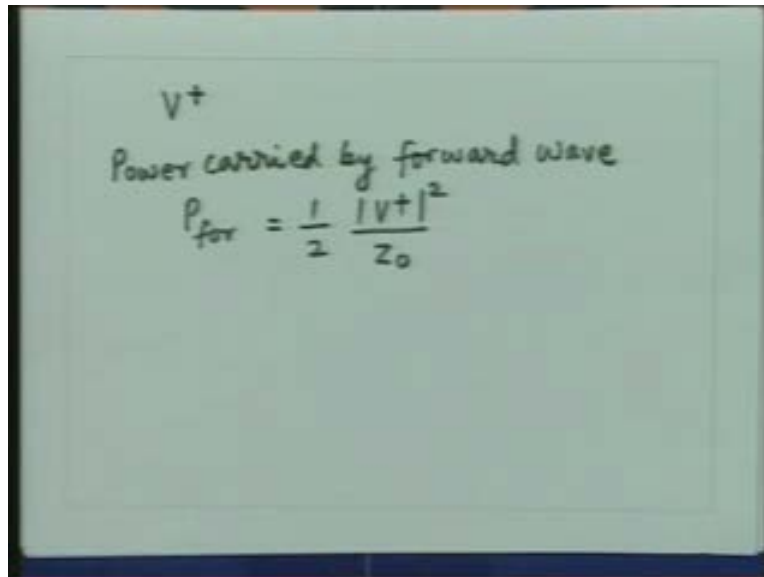 V+
Power carried by forward wave
P for = 1/2 |V+|² / Z0